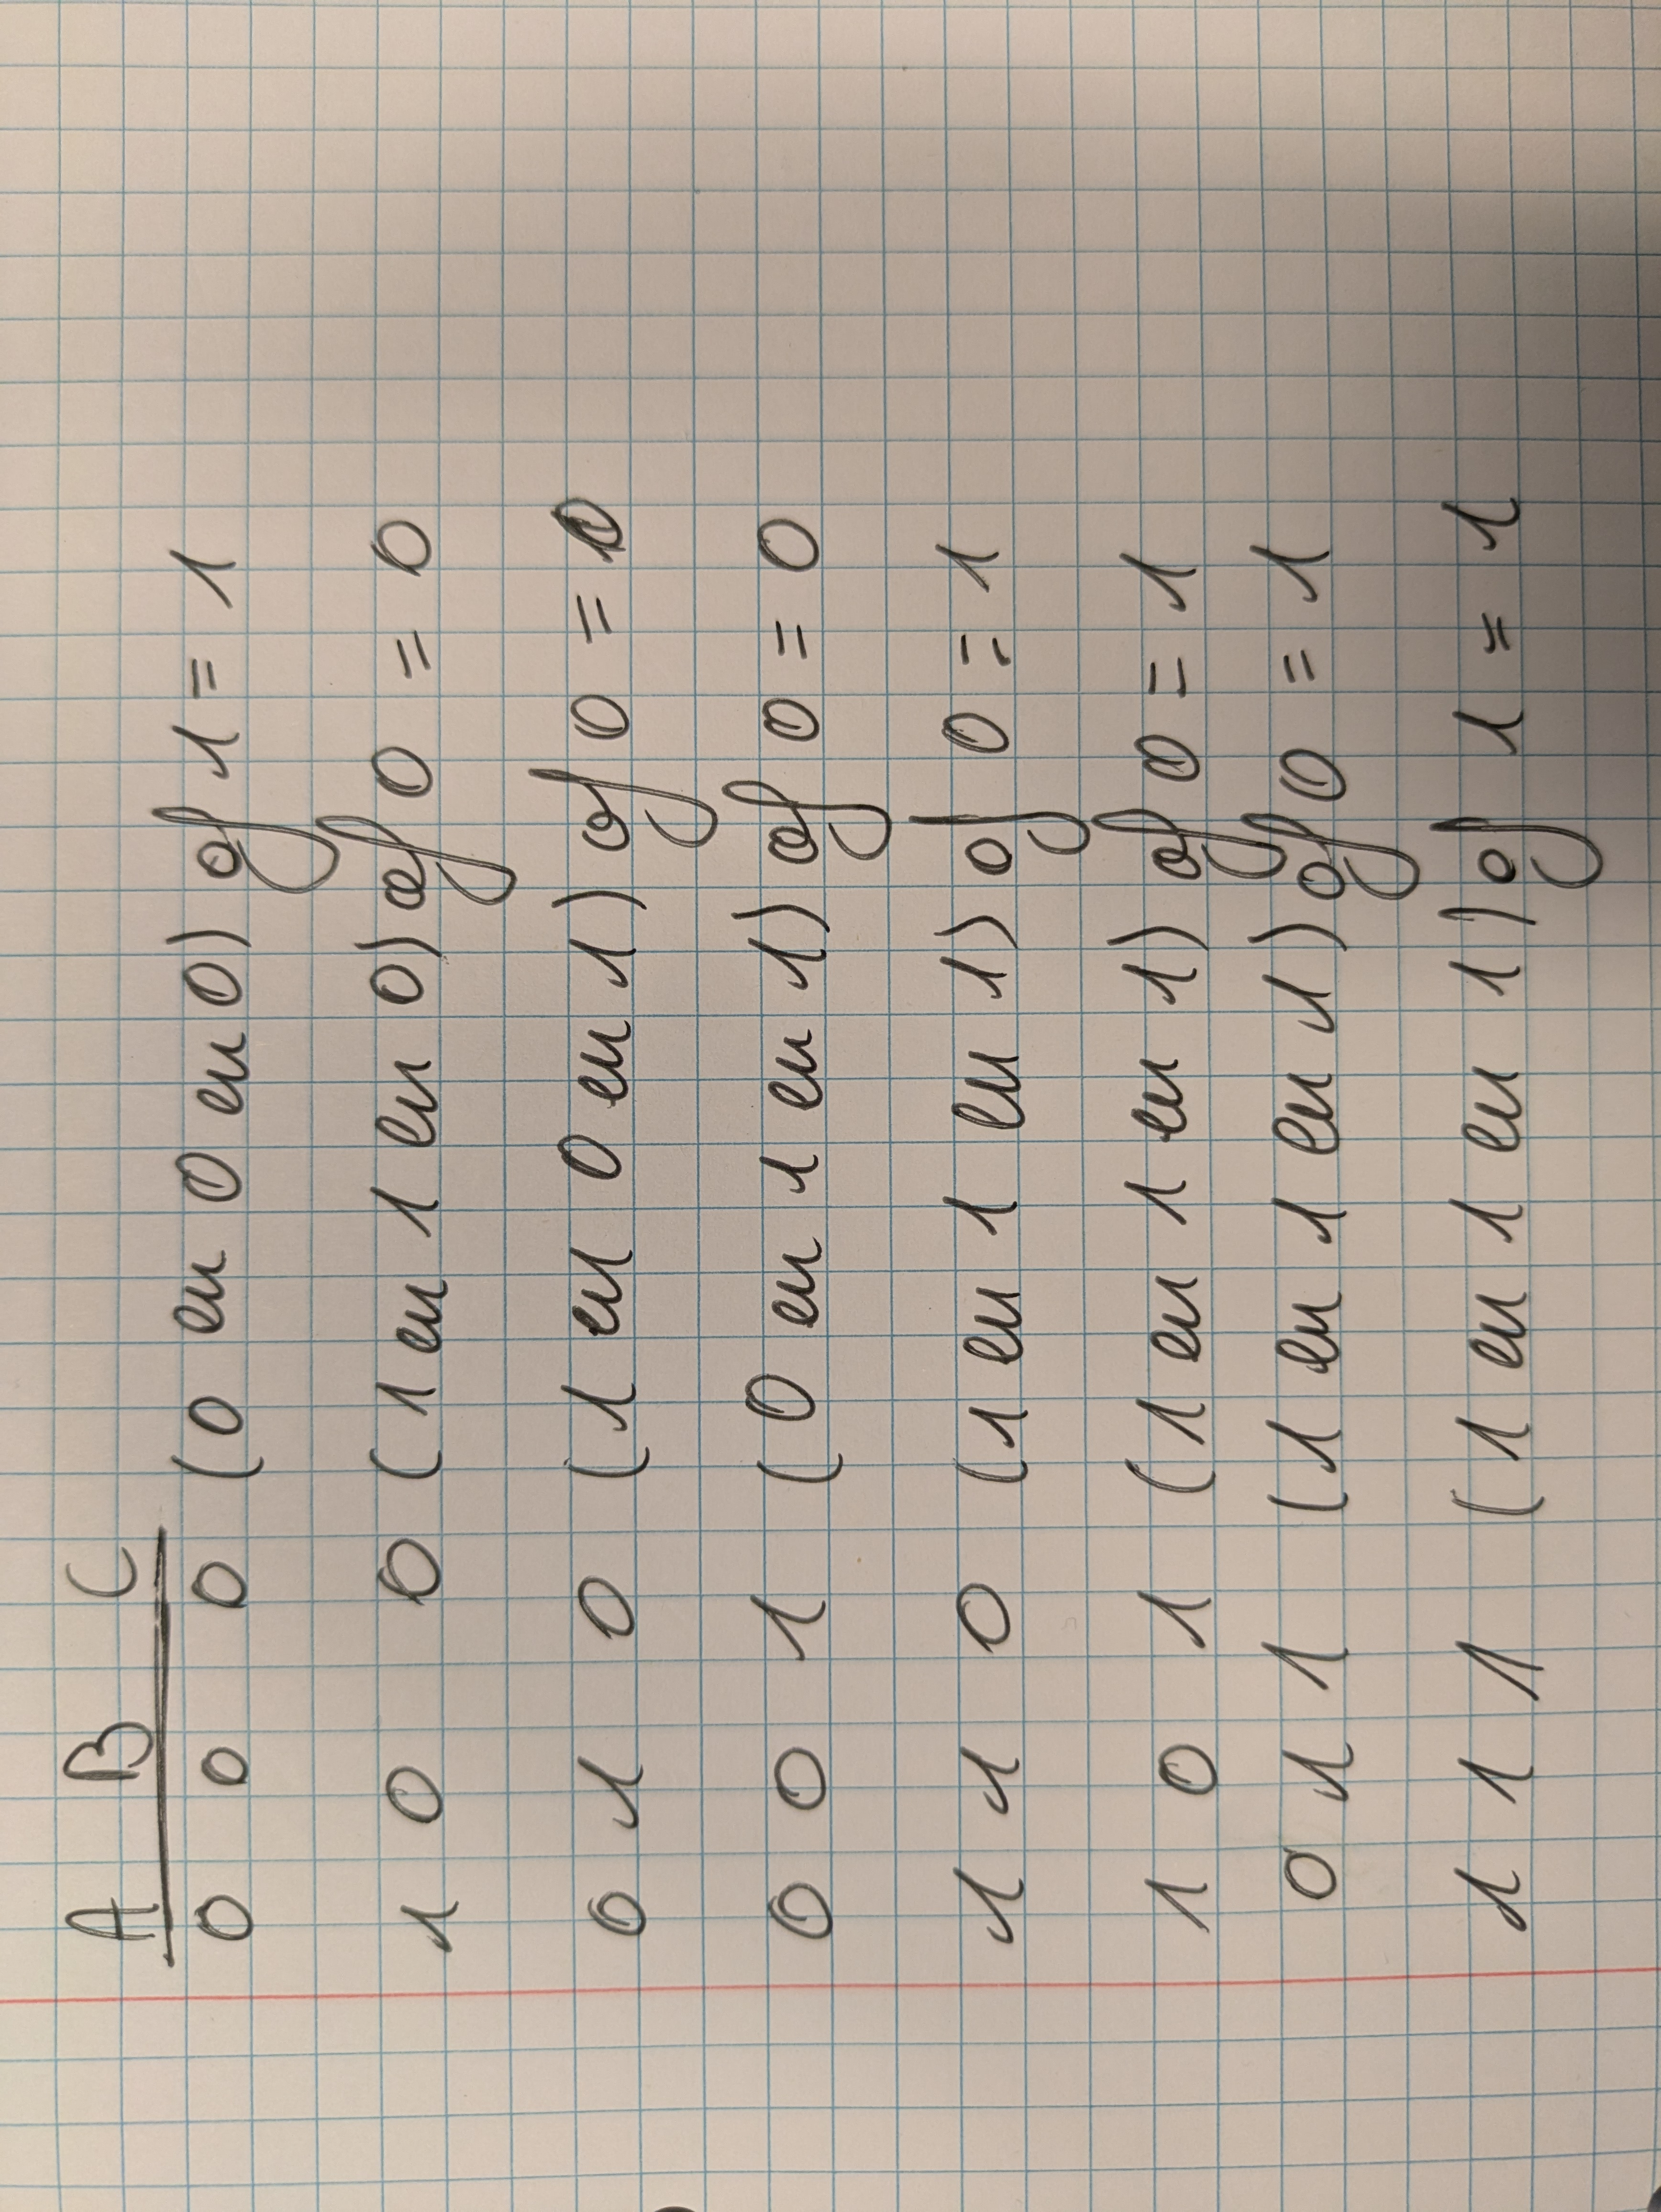 A B C
0 0 0 (0 en 0 en 0) of 1 = 1
1 0 0 (1 en 1 en 0) of 0 = 0
0 1 0 (1 en 0 en 1) of 0 = 0
0 0 1 (0 en 1 en 1) of 0 = 0
1 1 0 (1 en 1 en 1) of 0 = 1
1 0 1 (1 en 1 en 1) of 0 = 1
0 1 1 (1 en 1 en 1) of 0 = 1
1 1 1 (1 en 1 en 1) of 1 = 1